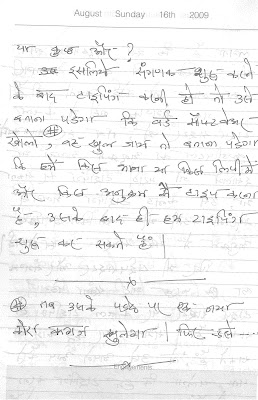 August Sunday 16th 2009
या कुछ और ?
इसलिये संगणक शुरू करने
के बाद टाइपिंग करनी हो तो उसे
बताना पड़ेगा कि वर्ड सॉफ्टवेअर
खोलो, वह खुल जाये तो बताना पड़ेगा
कि हमें किस भाषा या किस लिपीमें
और किस अनुक्रम से टाइप करना
है, उसके बाद ही हम टाइपिंग
शुरू कर सकते हैं।
तब उसके पडदे पर एक नया
कोरा कागज खुलेगा। फिर उसे